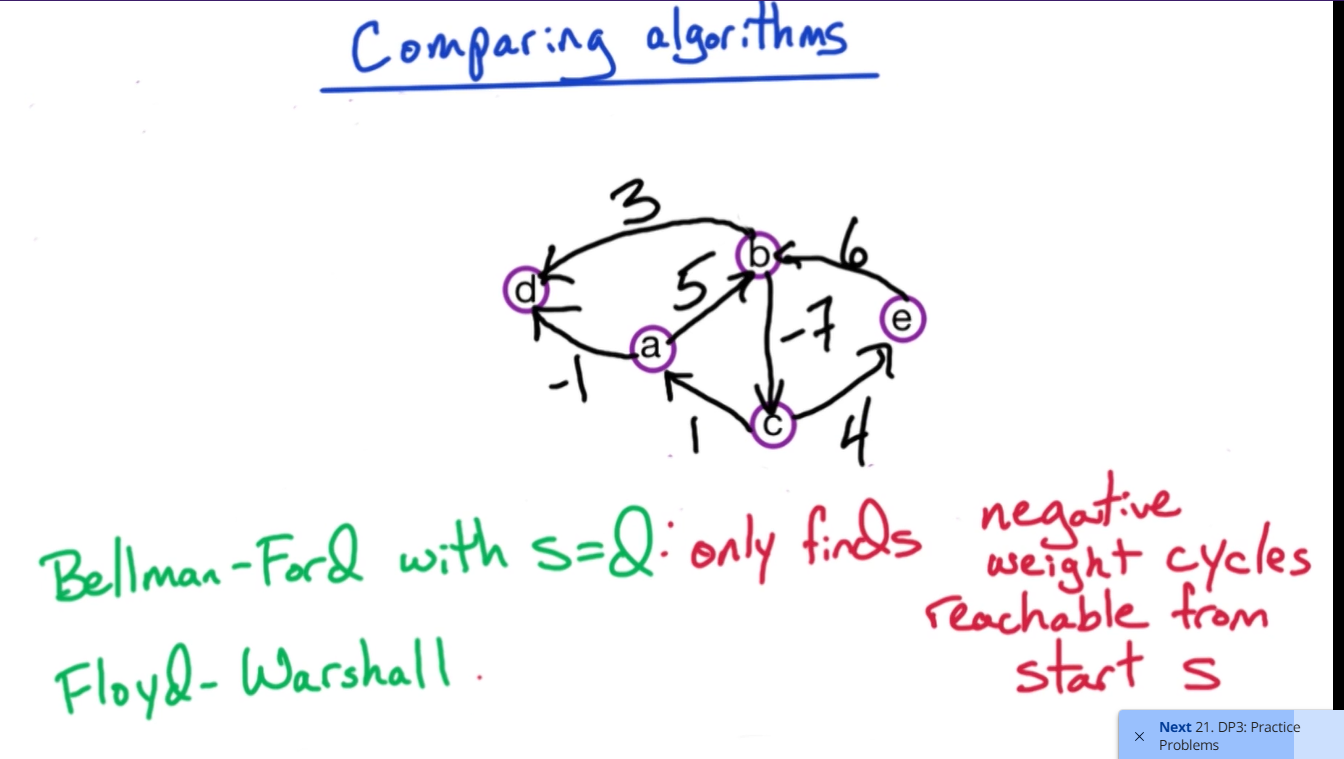 Comparing algorithms
3
b
6
d
5
-7
e
a
-1
c
1
4
Bellman-Ford with s=d: only finds negative
weight cycles
reachable from
start s
Floyd-Warshall.
Next 21. DP3: Practice
Problems